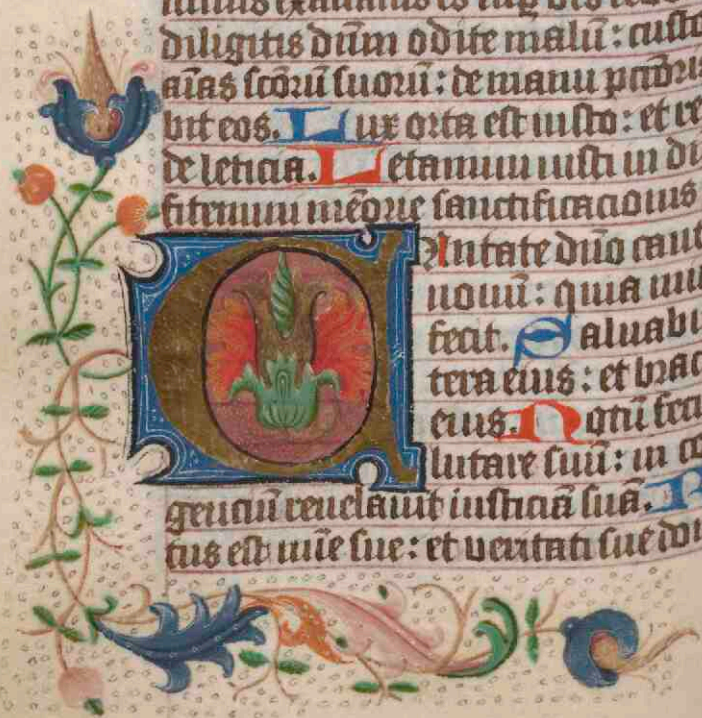 nimis exaltatus es sup̄ o̅s deos
diligitis dūm odite malū: custo
aīas sc̄orū suorū: de manu pctōris
bit eos. Lux orta est iusto: et re
de leticia. Letamini iusti in d
fitemini mēorie sanctificacionis
CAntate dūo cant
nouū: quia mi
fecit. Saluabi
tera eius: et brac
eius. Notū feci
lutare suū: in co
genciū reuelauit iusticiā suā. R
tus est mīe sue: et veritati sue do